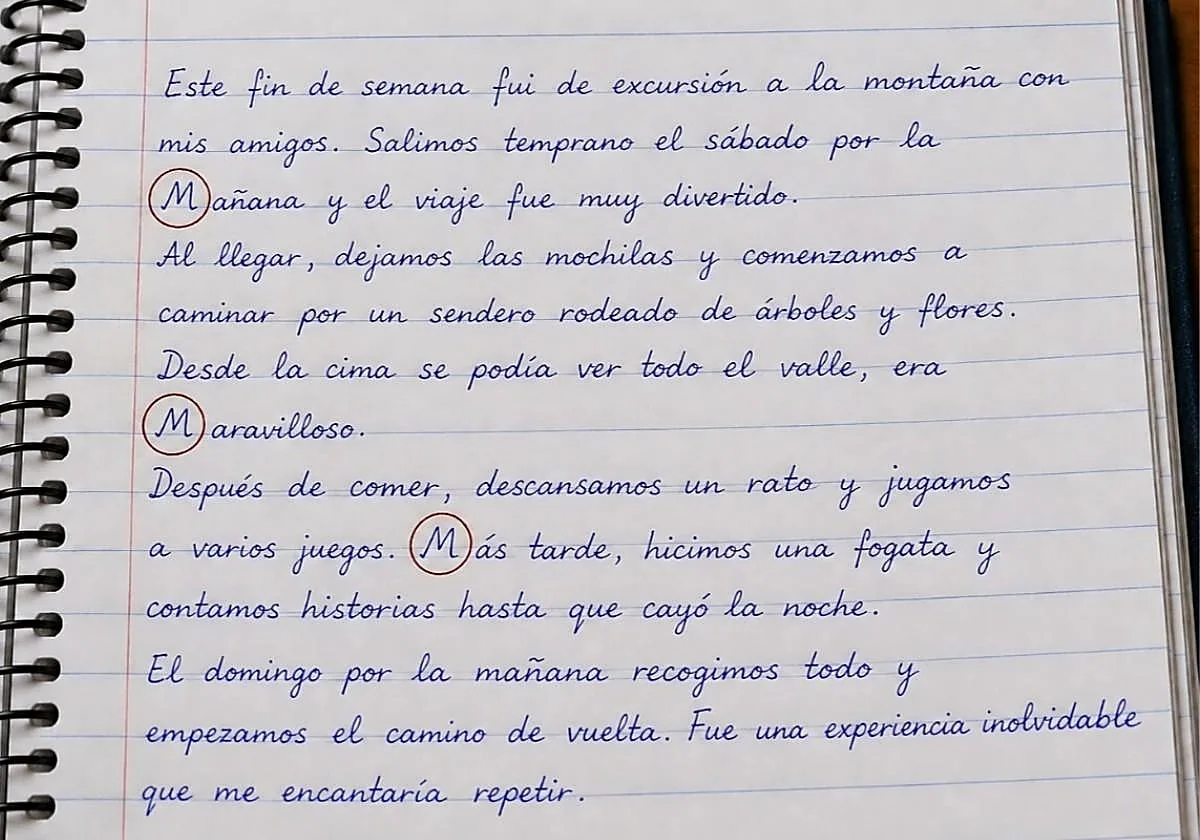 Este fin de semana fui de excursión a la montaña con
mis amigos. Salimos temprano el sábado por la
Mañana y el viaje fue muy divertido.
Al llegar, dejamos las mochilas y comenzamos a
caminar por un sendero rodeado de árboles y flores.
Desde la cima se podía ver todo el valle, era
Maravilloso.
Después de comer, descansamos un rato y jugamos
a varios juegos. Más tarde, hicimos una fogata y
contamos historias hasta que cayó la noche.
El domingo por la mañana recogimos todo y
empezamos el camino de vuelta. Fue una experiencia inolvidable
que me encantaría repetir.